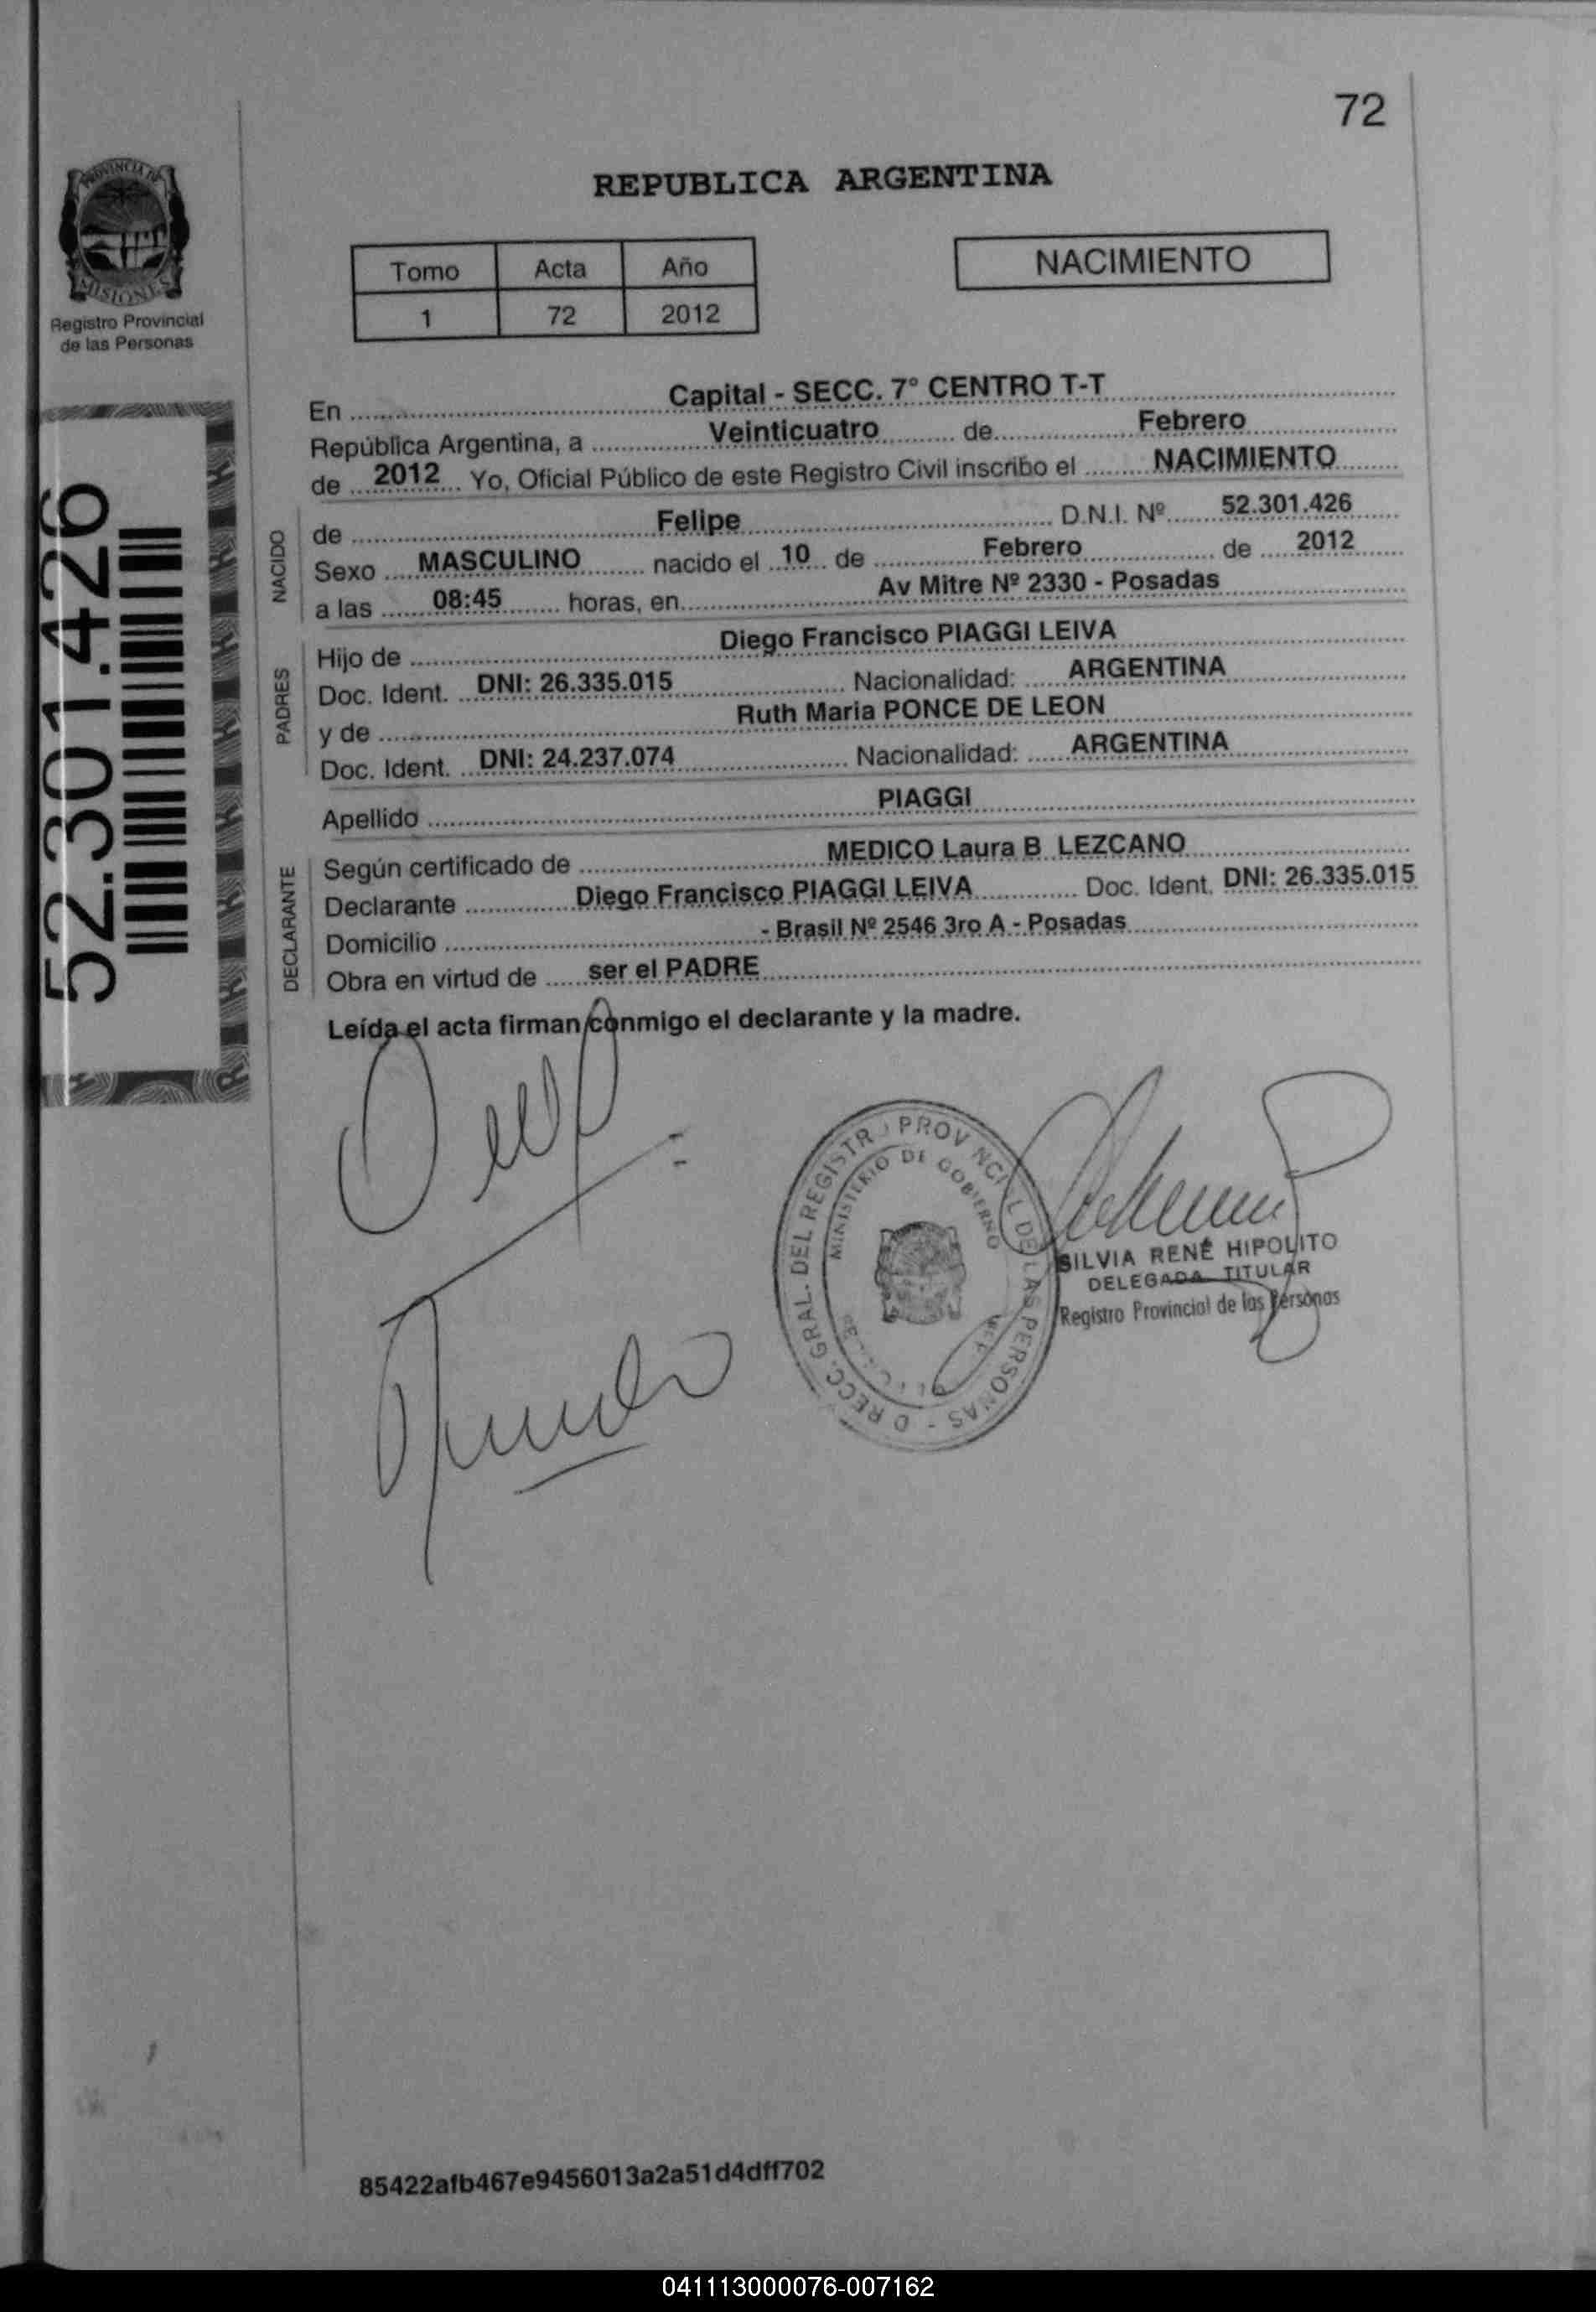 72
REPUBLICA ARGENTINA
PROVINCIA DE
MISIONES
Registro Provincial
de las Personas
Tomo Acta Año
1 72 2012
NACIMIENTO
52.301.426
En Capital - SECC. 7° CENTRO T-T
República Argentina, a Veinticuatro de Febrero
de 2012 Yo, Oficial Público de este Registro Civil inscribo el NACIMIENTO
NACIDO
de Felipe D.N.I. Nº 52.301.426
Sexo MASCULINO nacido el 10 de Febrero de 2012
a las 08:45 horas, en Av Mitre Nº 2330 - Posadas
PADRES
Hijo de Diego Francisco PIAGGI LEIVA
Doc. Ident. DNI: 26.335.015 Nacionalidad: ARGENTINA
y de Ruth Maria PONCE DE LEON
Doc. Ident. DNI: 24.237.074 Nacionalidad: ARGENTINA
Apellido PIAGGI
DECLARANTE
Según certificado de MEDICO Laura B LEZCANO
Declarante Diego Francisco PIAGGI LEIVA Doc. Ident. DNI: 26.335.015
Domicilio - Brasil Nº 2546 3ro A - Posadas
Obra en virtud de ser el PADRE
Leída el acta firman conmigo el declarante y la madre.
GRAL. DEL REGISTRO PROVINCIAL DE LAS PERSONAS
MINISTERIO DE GOBIERNO
SILVIA RENÉ HIPOLITO
DELEGADA TITULAR
Registro Provincial de las Personas
85422afb467e9456013a2a51d4dff702
041113000076-007162